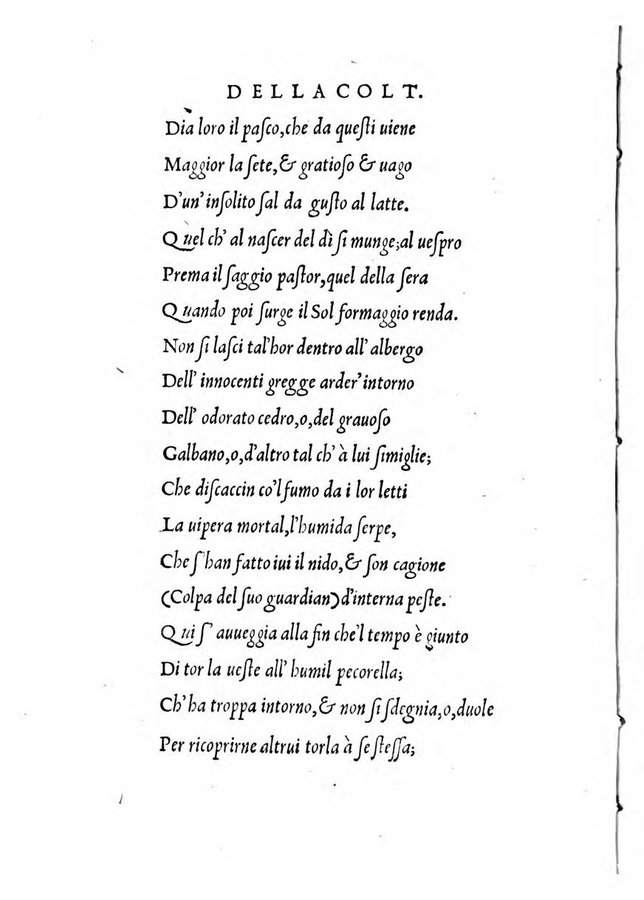 DELLA COLT.
Dia loro il paſco, che da queſti uiene
Maggior la ſete, & gratioſo & uago
D'un' inſolito ſal da guſto al latte.
Quel ch' al naſcer del dì ſi munge; al ueſpro
Prema il ſaggio paſtor, quel della ſera
Quando poi ſurge il Sol formaggio renda.
Non ſi laſci tal'hor dentro all' albergo
Dell' innocenti gregge arder' intorno
Dell' odorato cedro, o, del grauoſo
Galbano, o, d'altro tal ch' à lui ſimiglie;
Che diſcaccin co'l fumo da i lor letti
La uipera mortal, l'humida ſerpe,
Che ſ' han fatto iui il nido, & ſon cagione
(Colpa del ſuo guardian) d'interna peſte.
Qui ſ' auueggia alla fin che'l tempo è giunto
Di tor la ueſte all' humil pecorella;
Ch' ha troppa intorno, & non ſi ſdegnia, o, duole
Per ricoprirne altrui torla à ſe ſteſſa;